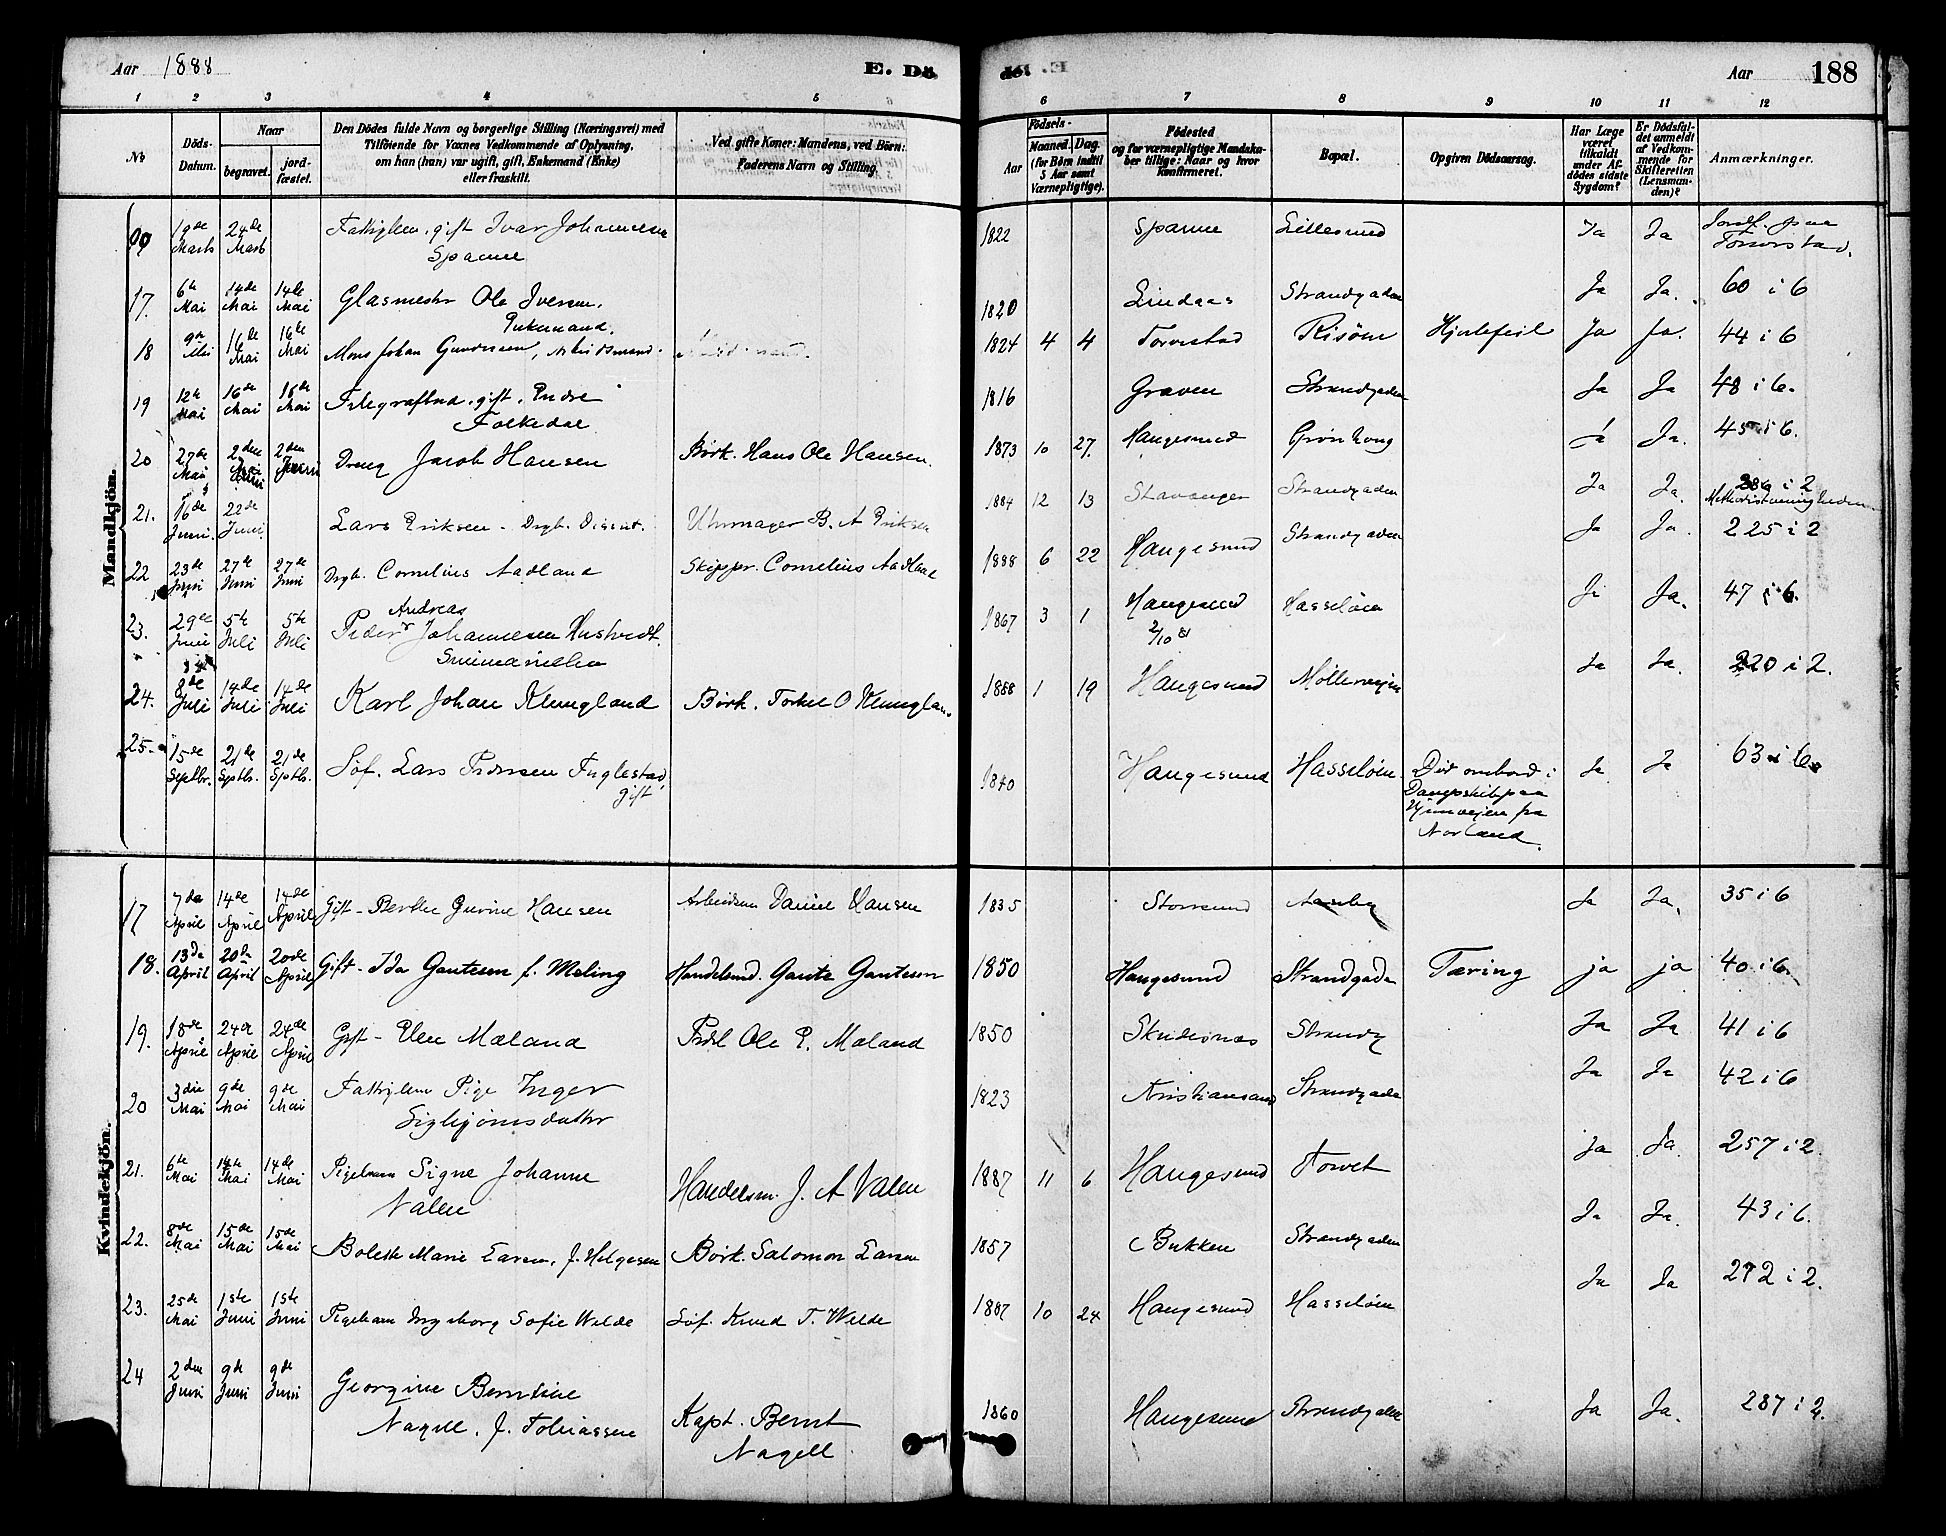 Aar 1888
E. Dö
de.
Aar 188
1 2 3 4 5 6 7 8 9 10 11 12
No
Döds-Datum.
Naar
begravet.
jord-fæstet.
Den Dödes fulde Navn og borgerlige Stilling (Næringsvei) med
Tilföiende for Voxnes Vedkommende af Oplysning,
om han (hun) var ugift, gift, Enkemand (Enke)
eller fraskilt.
Ved gifte Koner: Mandens, ved Börn:
Faderens Navn og Stilling.
Födsels-
Aar
Maaned. Dag.
(for Börn indtil
5 Aar samt
Værnepligtige).
Födested
og for værnepligtige Mandska-
ber tillige: Naar og hvor
konfirmeret.
Bopæl.
Opgiven Dödsaarsag.
Har Læge
været
tilkaldt
under Af-
dödes sidste
Sygdom?
Er Dödsfal-
det anmeldt
af Vedkom-
mende for
Skifteretten
(Lensman-
den)?
Anmærkninger.
Mandkjön.
19de Marts 24de Marts Fattiglem, gift Ivar Johannesen Spanne 1822 Spanne Lillesund Ja Ja Jordf. paa Torvestad.
17. 6te Mai 14de Mai 14de Mai Glasmester Ole Iversen, Enkemand. 1820 Lindaas Strandgaden Ja Ja. 60 i 6
18 9de Mai 16de Mai 16de Mai Mons Johan Gundersen, 1824 4 4 Torvestad Risöen Hjertefeil Ja Ja. 44 i 6
19 12te Mai 16de Mai 16de Mai Telegrafbud, gift, Endre Folkedal 1816 Graven Strandgaden Ja Ja 48 i 6.
20 27de Mai 2den Juni 2den Juni Dreng Jacob Hansen Börk. Hans Ole Hansen. 1873 10 27. Haugesund Grönhoug Ja. 45 i 6.
21. 16de Juni. 22de Juni Lars Eriksen - Drgb. Dissent. Uhrmager B. A Eriksen 1884 12 13 Stavanger Strandgaden Ja Ja. i 2 Methodistmenigheden
22 23de Juni 27de Juni 27de Juni Drgb. Cornelius Aadland Skipper. Cornelius Aadland 1888 6 22 Haugesund Strandgaden Ja Ja. 225 i 2
23. 29de Juni 5te Juli 5te Juli Peder Andreas Johannesen Hustvedt. 1867 3 1 Haugesund 2/10 81 Hasselöen Ja Ja. 47 i 6.
24. 8de Juli 14de Juli 14de Juli Karl Johan Klungland Börk. Torkel O Klungland 1888 1 19 Haugesund Möllerveien Ja Ja. 220 i 2.
25. 15de Septbr. 21de Septb. 21de Septb. Söf. Lars Pedersen Fuglestad, gift 1840 Haugesund Hasselöen. Död ombord i Dampskib paa Hjemveien fra Norland. Ja Ja 63 i 6.
Kvindekjön.
17 7de April 14de April 14de April Gift - Berthe Gurine Hansen Arbeidsm Daniel Hansen 1835 Storesund Ja Ja. 35 i 6
18. 13de April 20de April 20de April Gift - Ida Gautesen f. Meling Handelsmd. Gaute Gautesen 1850 Haugesund Strandgade Tæring ja ja 40 i 6.
19. 18de April 24de April 24de April Gift - Elen Mæland Ole P. Mæland 1850 Skudesnæs Strandg Ja Ja 41 i 6
20 3die Mai 9de Mai 9de Mai Fattiglem Pige Inger Sigbjörnsdatter 1823 Kristiansand Strandgade Ja Ja 42 i 6
21. 6te Mai 14de Mai 14de Mai Pigebarn Signe Johanne Valen Handelsm. J. A Valen 1887 11 6 Haugesund Torvet ja Ja. 257 i 2.
22. 8de Mai 15de Mai 15de Mai Bolette Marie Larsen, f. Helgesen Börk. Salomon Larsen 1857 Bukken Strandgaden Ja Ja. 43 i 6.
23. 25de Mai 1ste Juni 1ste Juni Pigebarn Ingeborg Sofie Welde Söf. Knud T. Welde 1887 10 24 Haugesund Hasselöen Ja Ja 272 i 2.
24 2den Juni 9de Juni 9de Juni Georgine Berntine Nagell, f. Tobiassen Kapt. Bernt Nagell 1860 Haugesund Strandgaden Ja Ja. 287 i 2.